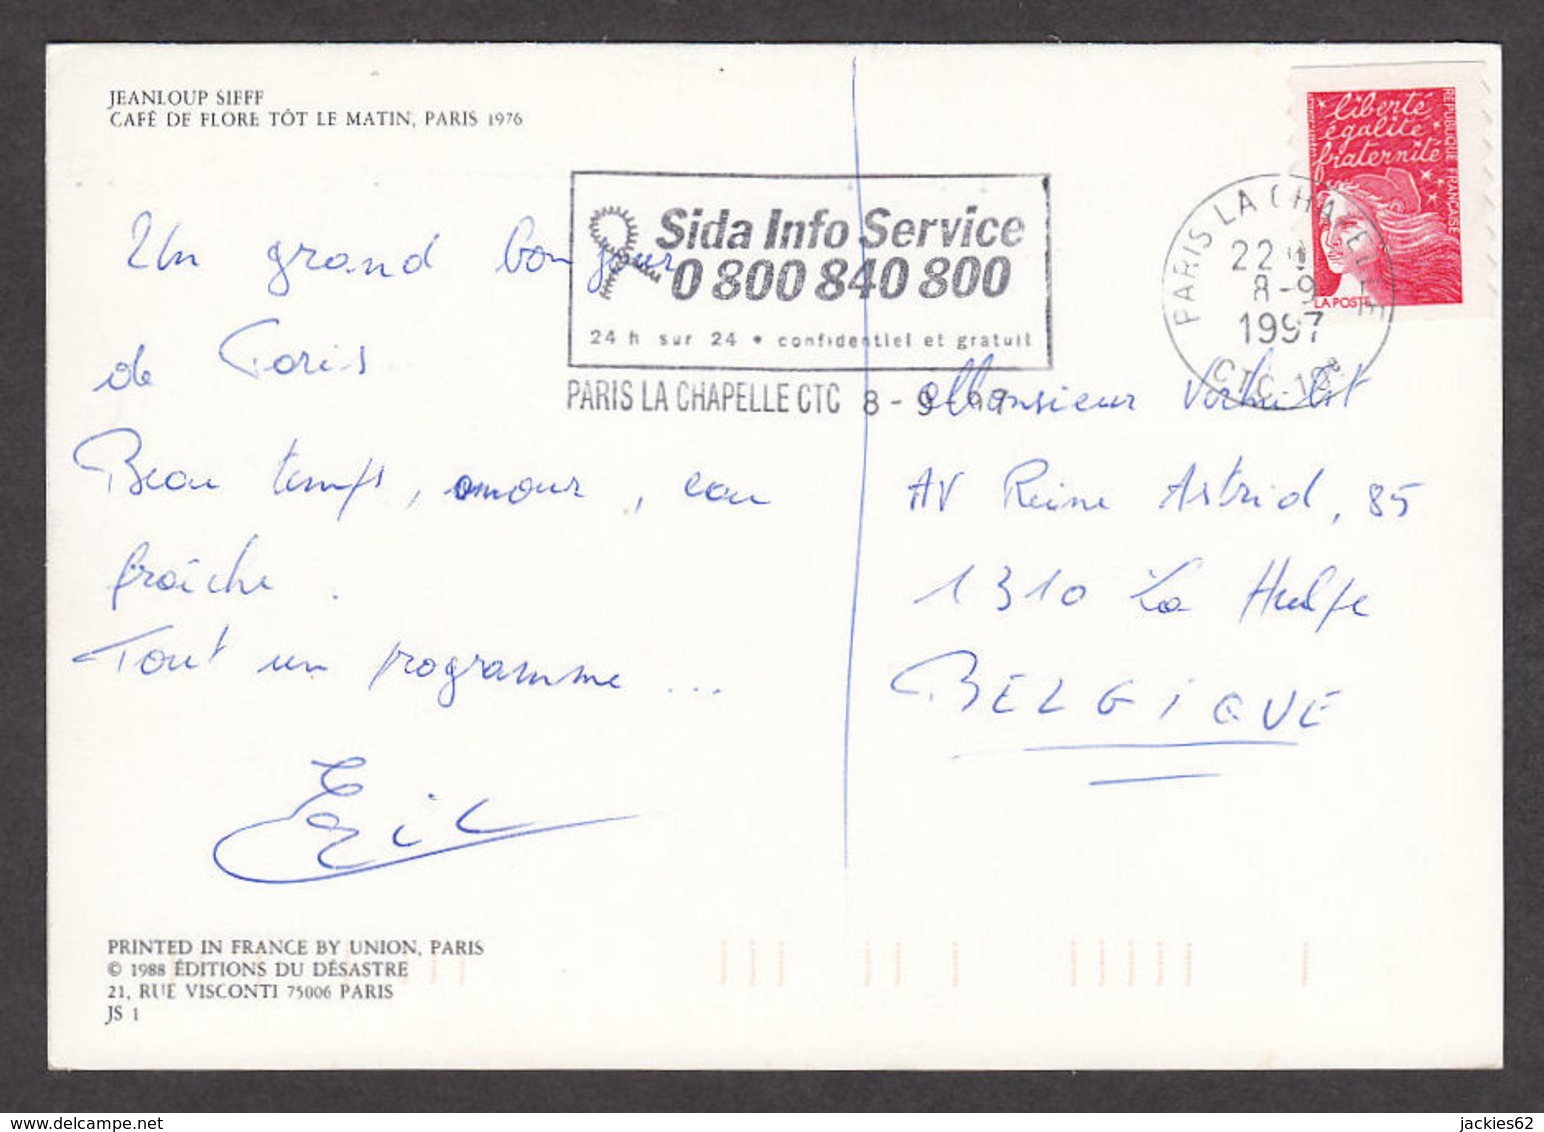 JEANLOUP SIEFF
CAFÉ DE FLORE TÔT LE MATIN, PARIS 1976
liberté
égalité
fraternité
RÉPUBLIQUE FRANÇAISE
LA POSTE
Sida Info Service
0 800 840 800
24 h sur 24 • confidentiel et gratuit
PARIS LA CHAPELLE CTC 8-9-97
PARIS LA CHAPELLE
22 H
8-9
1997
CTC-18e
Un grand bonjour
de Paris
Beau temps, amour, eau
fraîche.
Tout un programme...
Eric
Monsieur Verhulst
AV Reine Astrid, 85
1310 La Hulpe
BELGIQUE
PRINTED IN FRANCE BY UNION, PARIS
© 1988 ÉDITIONS DU DÉSASTRE
21, RUE VISCONTI 75006 PARIS
JS 1
jackies62